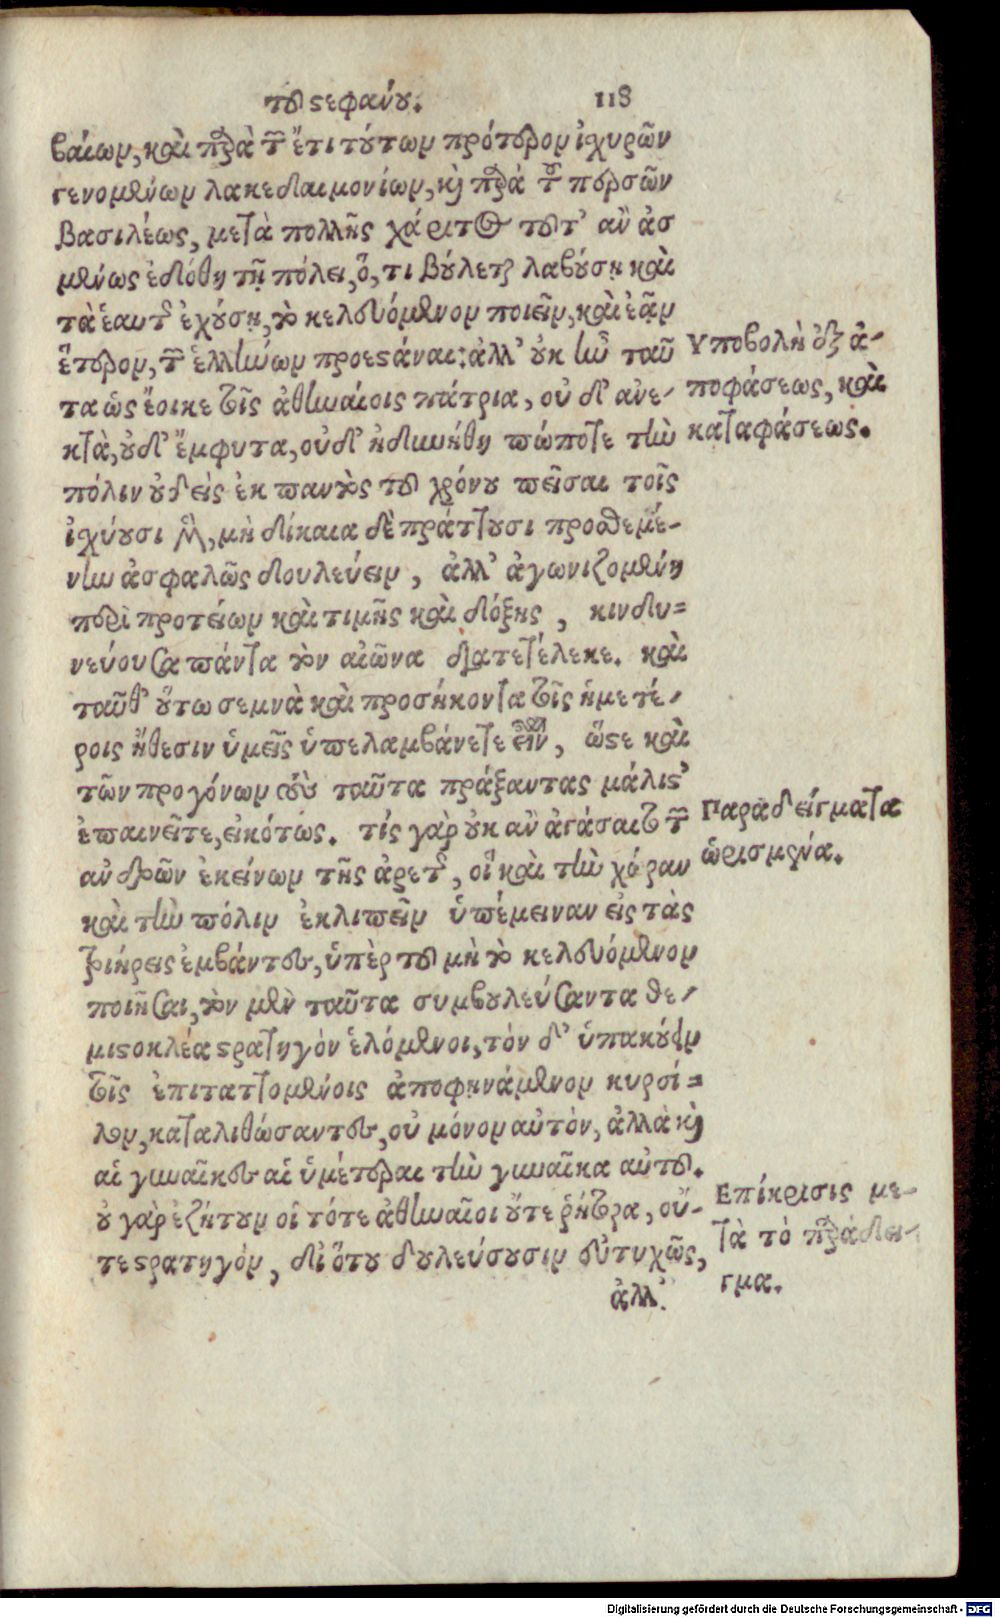 τοῦ στεφάνου. 118
βαίων, καὶ παρὰ τῶν ἔτι τούτων πρότερον ἰχυρῶν
γενομένων λακεδαιμονίων, καὶ παρὰ τοῦ περσῶν
βασιλέως, μετὰ πολλῆς χάριτος τοῦτ' ἂν ἀσ
μένως ἐδόθη τῇ πόλει, ὅ, τι βούλεται λαβούσῃ καὶ
τὰ ἑαυτῆς ἐχούσῃ, τὸ κελευόμενον ποιεῖν, καὶ ἐᾷν
ἕτερον, τῶν ἑλλήνων προεστάναι: ἀλλ' οὐκ ἦν ταῦ
τα ὡς ἔοικε τοῖς ἀθηναίοις πάτρια, οὐ δ' ἀνε-
κτὰ, οὐδ' ἔμφυτα, οὐδ' ἠδυνήθη πώποτε τὴν
πόλιν οὐδεὶς ἐκ παντὸς τοῦ χρόνου πεῖσαι τοῖς
ἰχύουσι μὲν, μὴ δίκαια δὲ πράττουσι προσθεμέ-
νην ἀσφαλῶς δουλεύειν, ἀλλ' ἀγωνιζομένη
περὶ προτείων καὶ τιμῆς καὶ δόξης, κινδυ-
νεύουσα πάντα τὸν αἰῶνα διατετέλεκε. καὶ
ταῦθ' οὕτω σεμνὰ καὶ προσήκοντα τοῖς ἡμετέ-
ροις ἤθεσιν ὑμεῖς ὑπελαμβάνετε εἶναι, ὥστε καὶ
τῶν προγόνων τοὺς ταῦτα πράξαντας μάλιστ'
ἐπαινεῖτε, εἰκότως. τίς γὰρ οὐκ ἂν ἀγάσαιτο τῶν
ἀνδρῶν ἐκείνων τῆς ἀρετῆς, οἳ καὶ τὴν χώραν
καὶ τὴν πόλιν ἐκλιπεῖν ὑπέμειναν εἰς τὰς
τριήρεις ἐμβάντες, ὑπὲρ τοῦ μὴ τὸ κελευόμενον
ποιῆσαι, τὸν μὲν ταῦτα συμβουλεύσαντα θε-
μιστοκλέα στρατηγὸν ἑλόμενοι, τὸν δ' ὑπακούειν
τοῖς ἐπιταττομένοις ἀποφηνάμενον κυρσί-
λον, καταλιθώσαντες, οὐ μόνον αὐτὸν, ἀλλὰ καὶ
αἱ γυναῖκες αἱ ὑμέτεραι τὴν γυναῖκα αὐτοῦ.
οὐ γὰρ ἐζήτουν οἱ τότε ἀθηναῖοι οὔτε ῥήτορα, οὔ-
τε στρατηγὸν, δι' ὅτου δουλεύσουσιν εὐτυχῶς,
ἀλλ'.
Ὑποβολὴ ἐξ ἀ-
ποφάσεως, καὶ
καταφάσεως.
Παραδείγματα
ὡρισμένα.
Ἐπίκρισις με-
τὰ τὸ παράδει-
γμα.
Digitalisierung gefördert durch die Deutsche Forschungsgemeinschaft - DFG